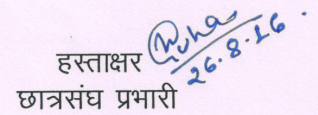 हस्ताक्षर
26.8.16.
छात्रसंघ प्रभारी